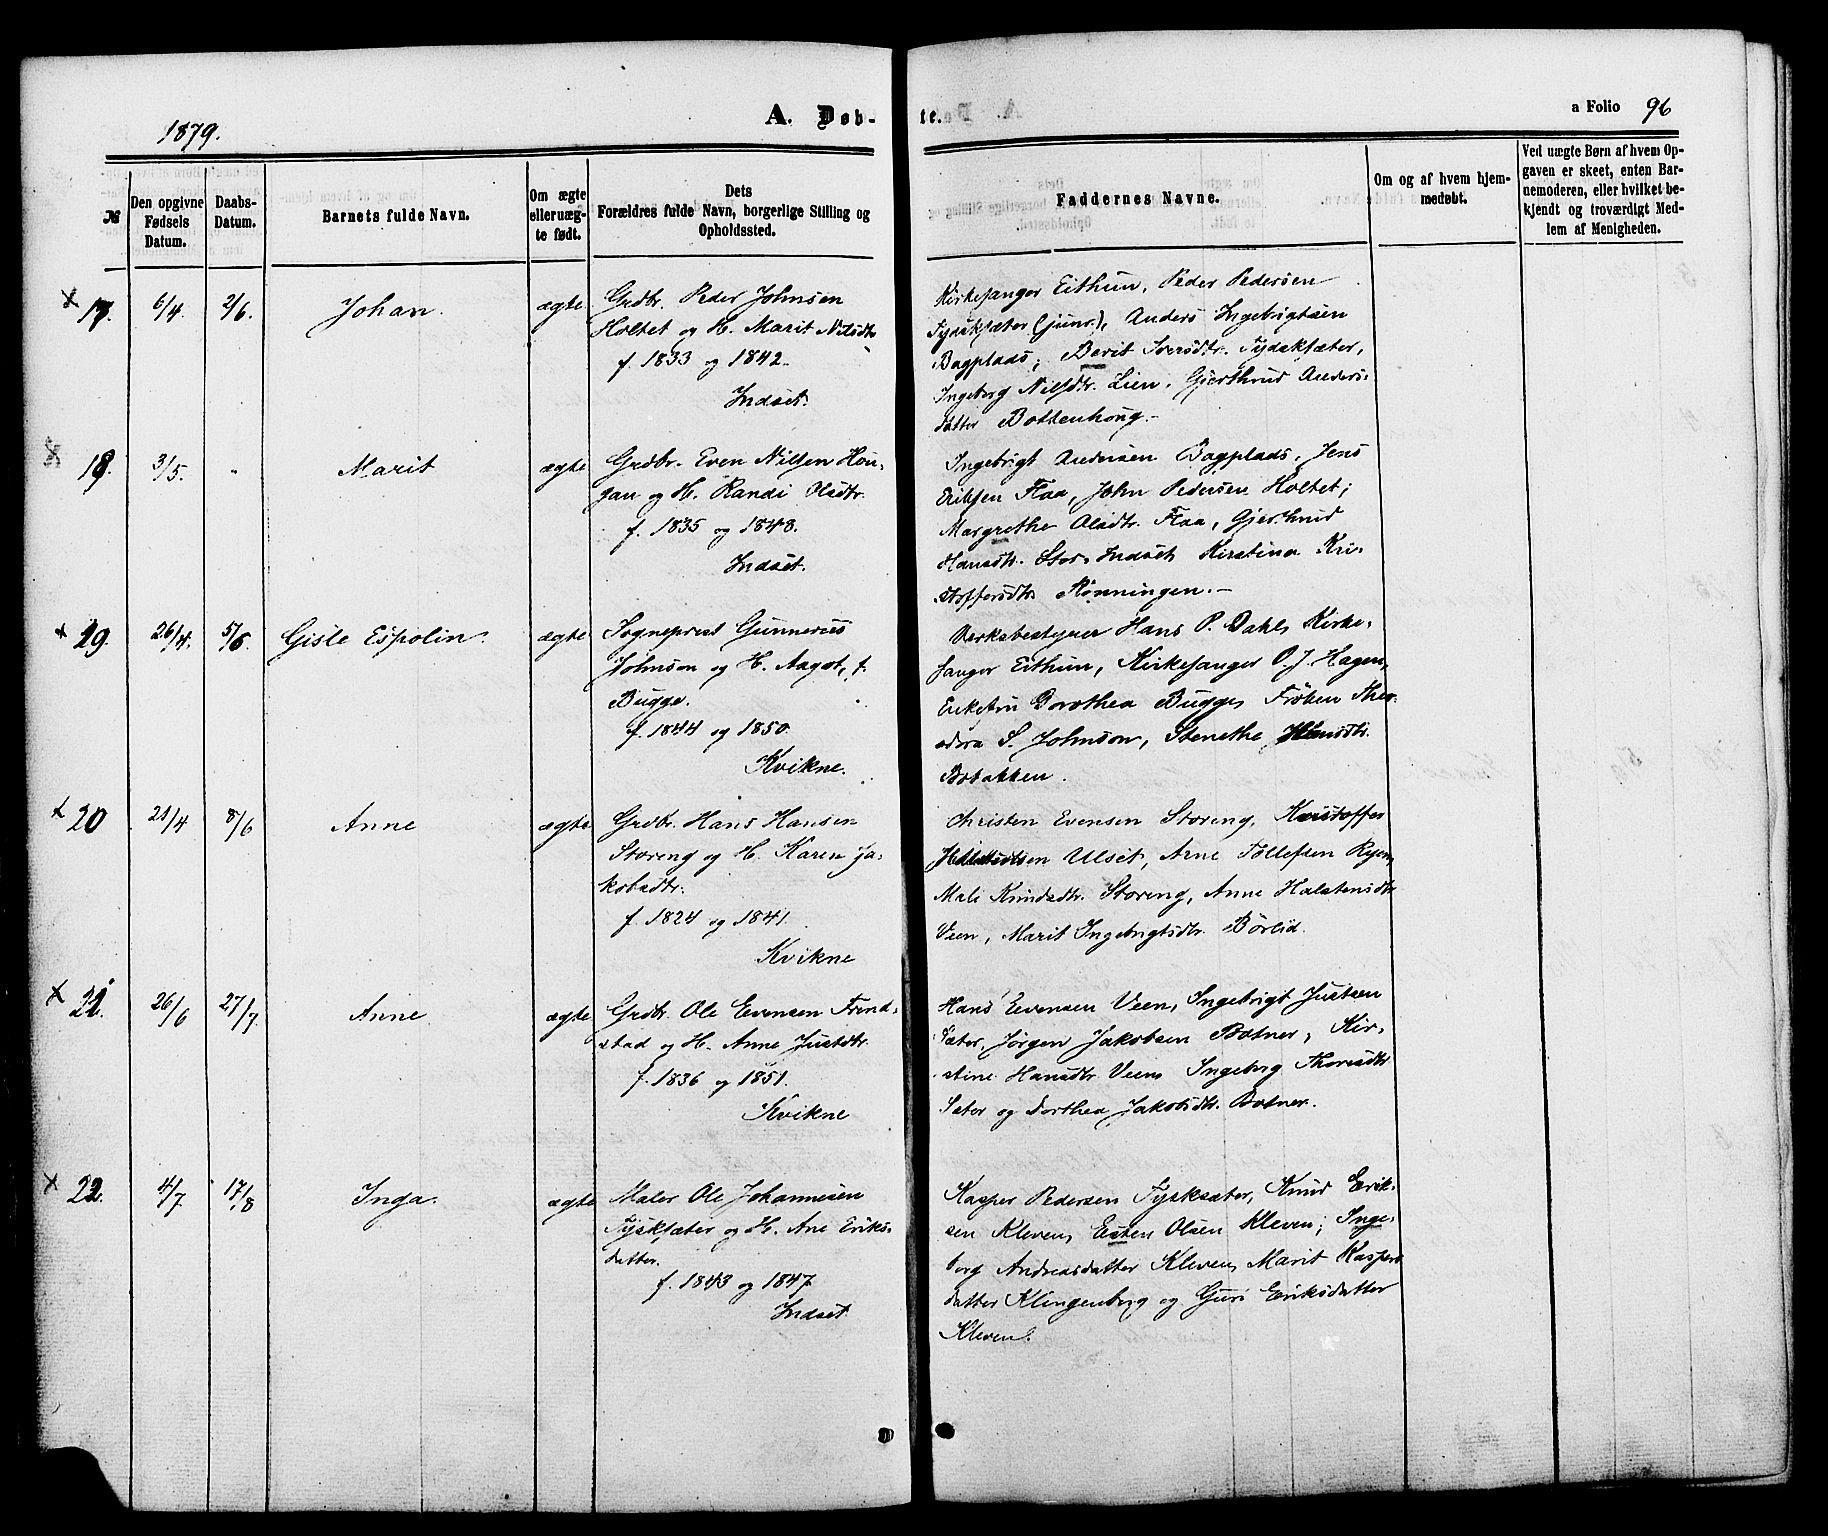 1879.
A. Døb-
te.
a Folio 96
№
Den opgivne Fødsels Datum.
Daabs-Datum.
Barnets fulde Navn.
Om ægte eller uægte født.
Dets Forældres fulde Navn, borgerlige Stilling og Opholdssted.
Faddernes Navne.
Om og af hvem hjemmedøbt.
Ved uægte Børn af hvem Opgaven er skeet, enten Barnemoderen, eller hvilket bekjendt og troværdigt Medlem af Menigheden.
17. 6/4. 2/6. Johan. ægte
Grdbr. Peder Johnsen
Holtet og H. Marit Nilsdtr
f. 1833 og 1842.
Indset.
Kirkesanger Eithun, Peder Pedersen
Tydsksæter (junr.), Anders Ingebrigtsen
Bagplads; Berit Iversdtr. Tydsksæter,
Ingeborg Nilsdtr. Lien, Gjerthrud Anders-
datter Bottenhoug.-
18. 3/5. " Marit ægte
Grdbr. Even Nilsen Hou-
gan og H. Randi Olsdtr.
f. 1835 og 1848.
Indset.
Ingebrigt Andersen Bagplads, Jens
Eriksen Flaa, John Pedersen Holtet;
Margrethe Olsdtr. Flaa, Gjerthrud
Hansdtr. Stor-Indset, Kirstina Kri-
stoffersdtr. Rønningen.-
19. 26/4. 5/6. Gisle Espolin. ægte
Sogneprest Gunnerus
Johnson og H. Aagot, f.
Bugge.
f. 1844 og 1850.
Kvikne.
Verksbestyrer Hans P. Dahl, Kirke-
sanger Eithun, Kirkesanger O. J. Hagen,
Enkefru Dorothea Bugge, Frøken Theo-
dora S. Johnson, Stenethe Hansdtr.
Bobakken.
20 21/4 8/6 Anne ægte
Grdbr. Hans Hansen
Storeng og H. Karen Ja-
kobsdtr.
f. 1824 og 1841.
Kvikne
Christen Evensen Storeng, Kristoffer
Ulset, Arne Tollefsen Ryen,
Mali Knudsdtr. Storeng, Anne Halstensdtr
Veen, Marit Ingebrigtsdtr. Børlid.
21. 26/6 27/7. Anne. ægte
Grdbr. Ole Evensen Frend-
stad og H. Anne Justdtr.
f. 1836 og 1851.
Kvikne
Hans Evensen Veen, Ingebrigt Justsen
Sæter, Jørgen Jakobsen Botner, Kir-
stine Hansdtr. Veen, Ingeborg Thoresdtr
Sæter og Dorthea Jakobsdtr. Botner.
22. 4/7 17/8 Inga. ægte
Maler Ole Johannesen
Tysksæter og H. Ane Eriks-
datter.
f. 1843 og 1847.
Indset
Kasper Pedersen Tysksæter, Knud Erik-
sen Kleven, Esten Olsen Kleven; Inge-
borg Andreasdatter Kleven, Marit Kaspers
datter Klingenberg og Guri Eriksdatter
Kleven.